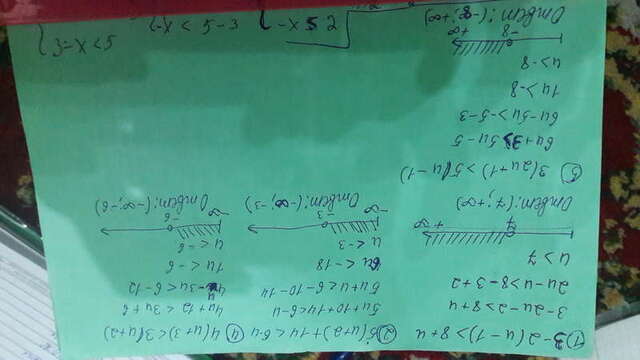 1) 3-2(u-1)>8+u
3-2u-2>8+u
2u-u>8-3+2
u>7
7 +∞
Ответ: (7;+∞)
2) 5(u+2)+14<6-u
5u+10+14<6-u
5u+u<6-10-14
6u<-18
u<-3
-∞ -3
Ответ: (-∞;-3)
4) 4(u+3)<3(u+2)
4u+12<3u+6
4u-3u<6-12
1u<-6
u<-6
-∞ -6
Ответ: (-∞;-6)
5) 3(2u+1)>5(u-1)
6u+3>5u-5
6u-5u>-5-3
1u>-8
u>-8
-8 +∞
Ответ: (-8;+∞)
-x<5-3
3-x<5